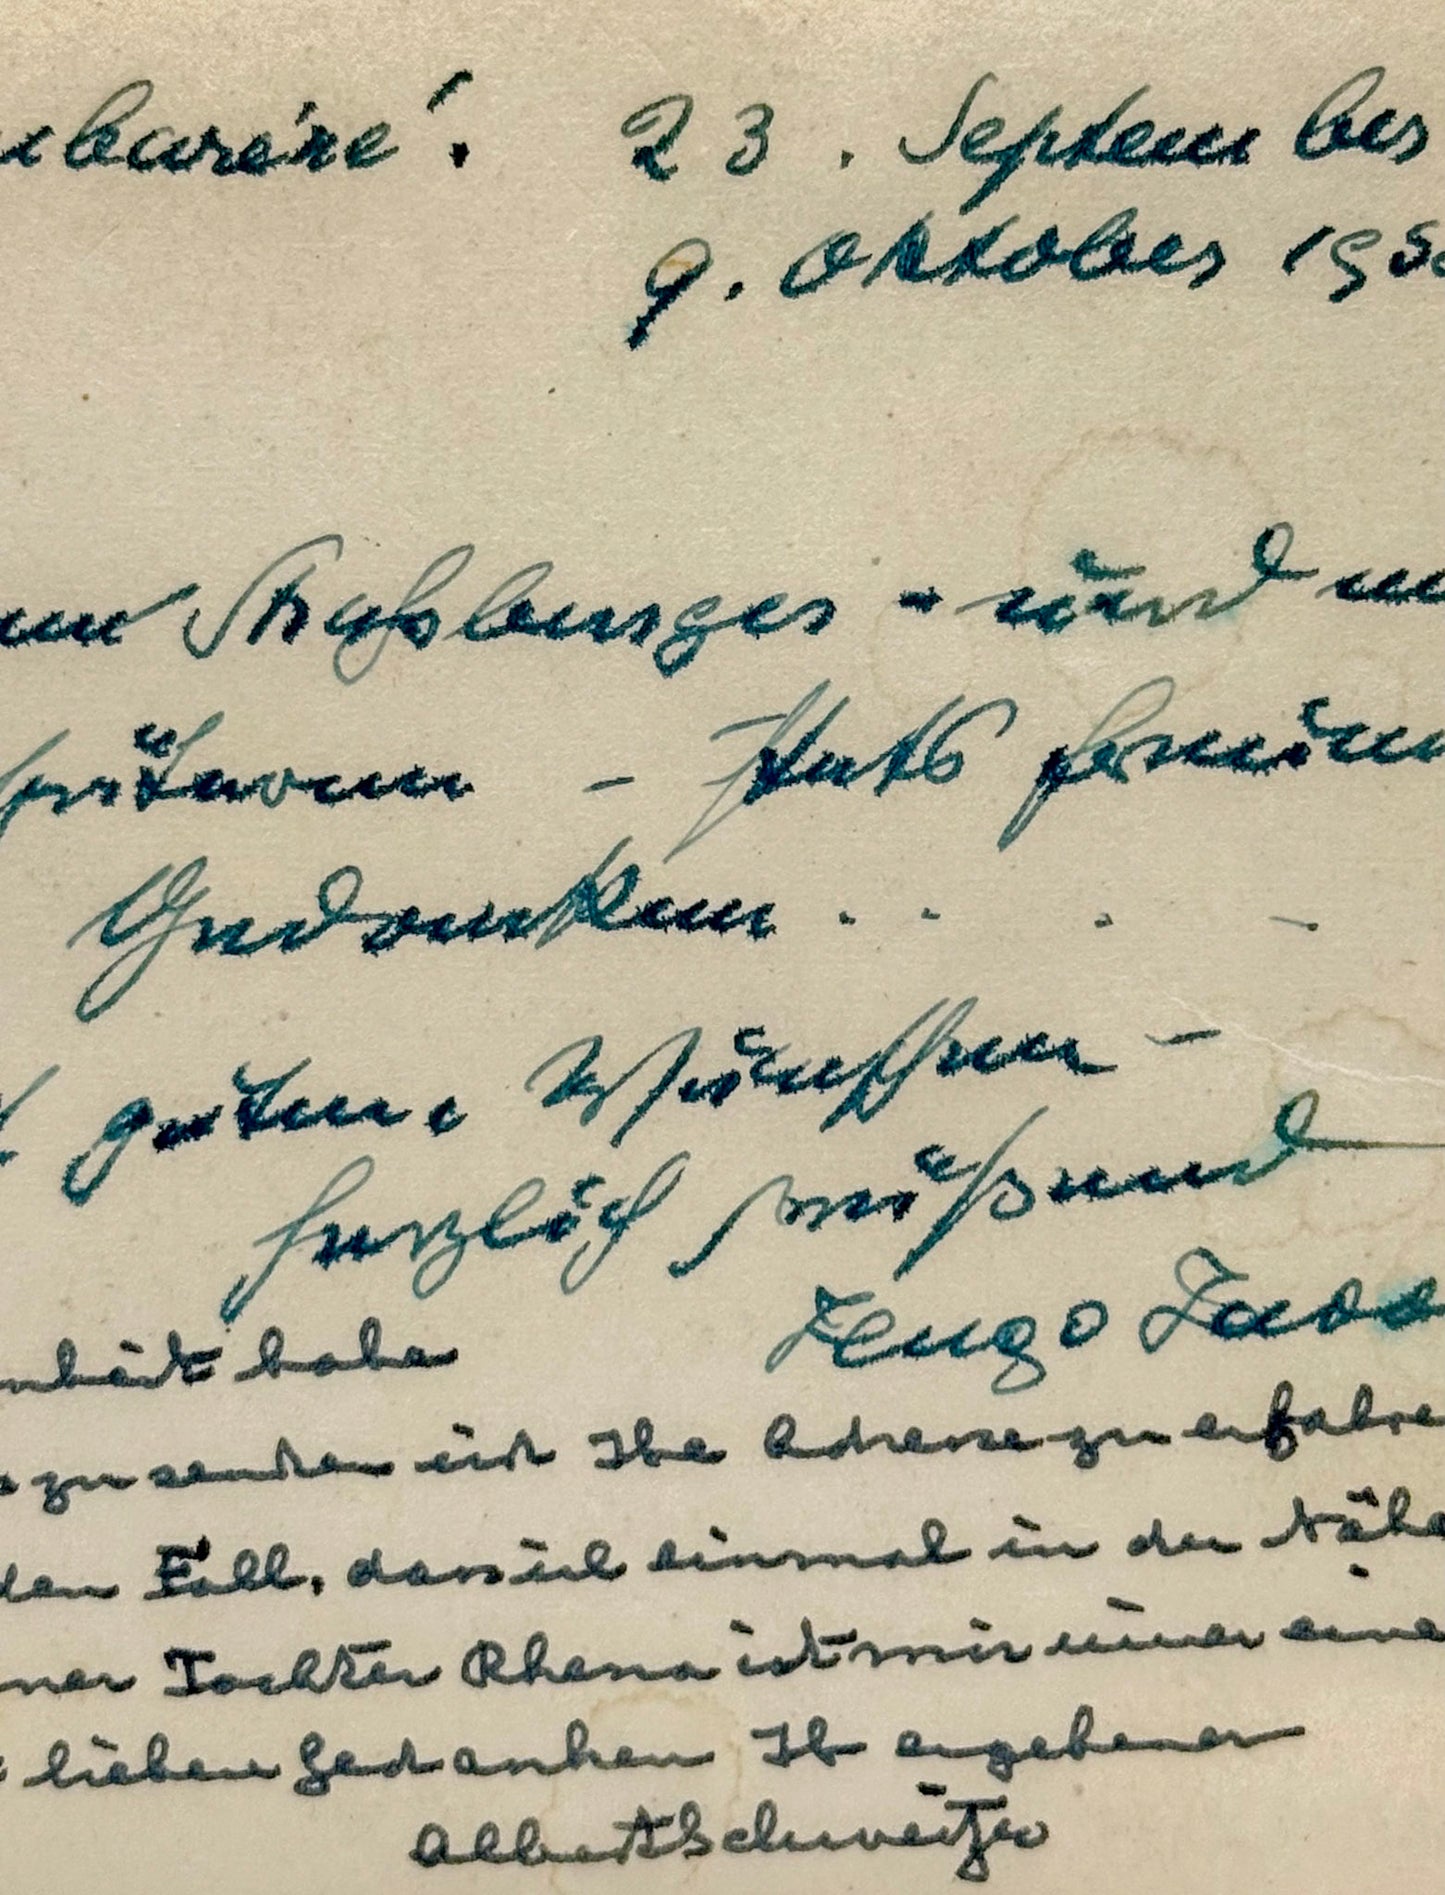 Lambaréné. 23. September
9. Oktober 195
Straßburger - und
- stets
Gedanken . . . -
guten Wünschen -
herzlich grüßend
Hugo
habe
zu senden und Ihre Adresse zu erfahre
den Fall, dass ich einmal in der Nähe
ner Tochter Rhena ist mir immer eine
lieben Gedanken Ihr ergebener
Albert Schweitzer